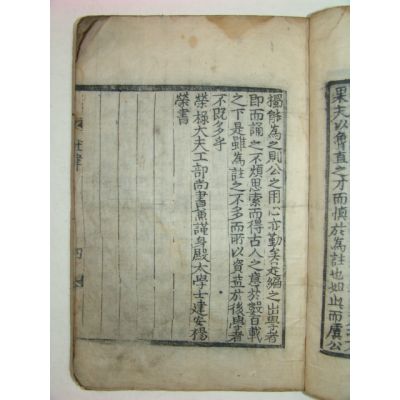 果夫以魯直之才而慎於為註也如此而虞公
獨能為之則公之用心亦勤矣是編之出學者
即而誦之不煩思索而得古人之意於數百載
之下是雖為註之不多而所以資益於後學者
不既多乎
榮祿大夫工部尚書兼謹身殿大學士建安楊
榮書